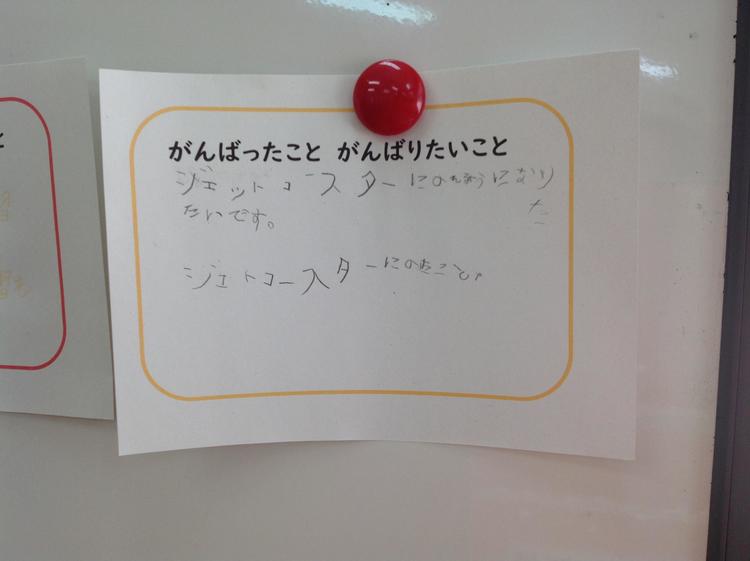 がんばったこと がんばりたいこと
ジェットコースターにのれるようになり
たいです。
た
ジェトコースターにのたこと。